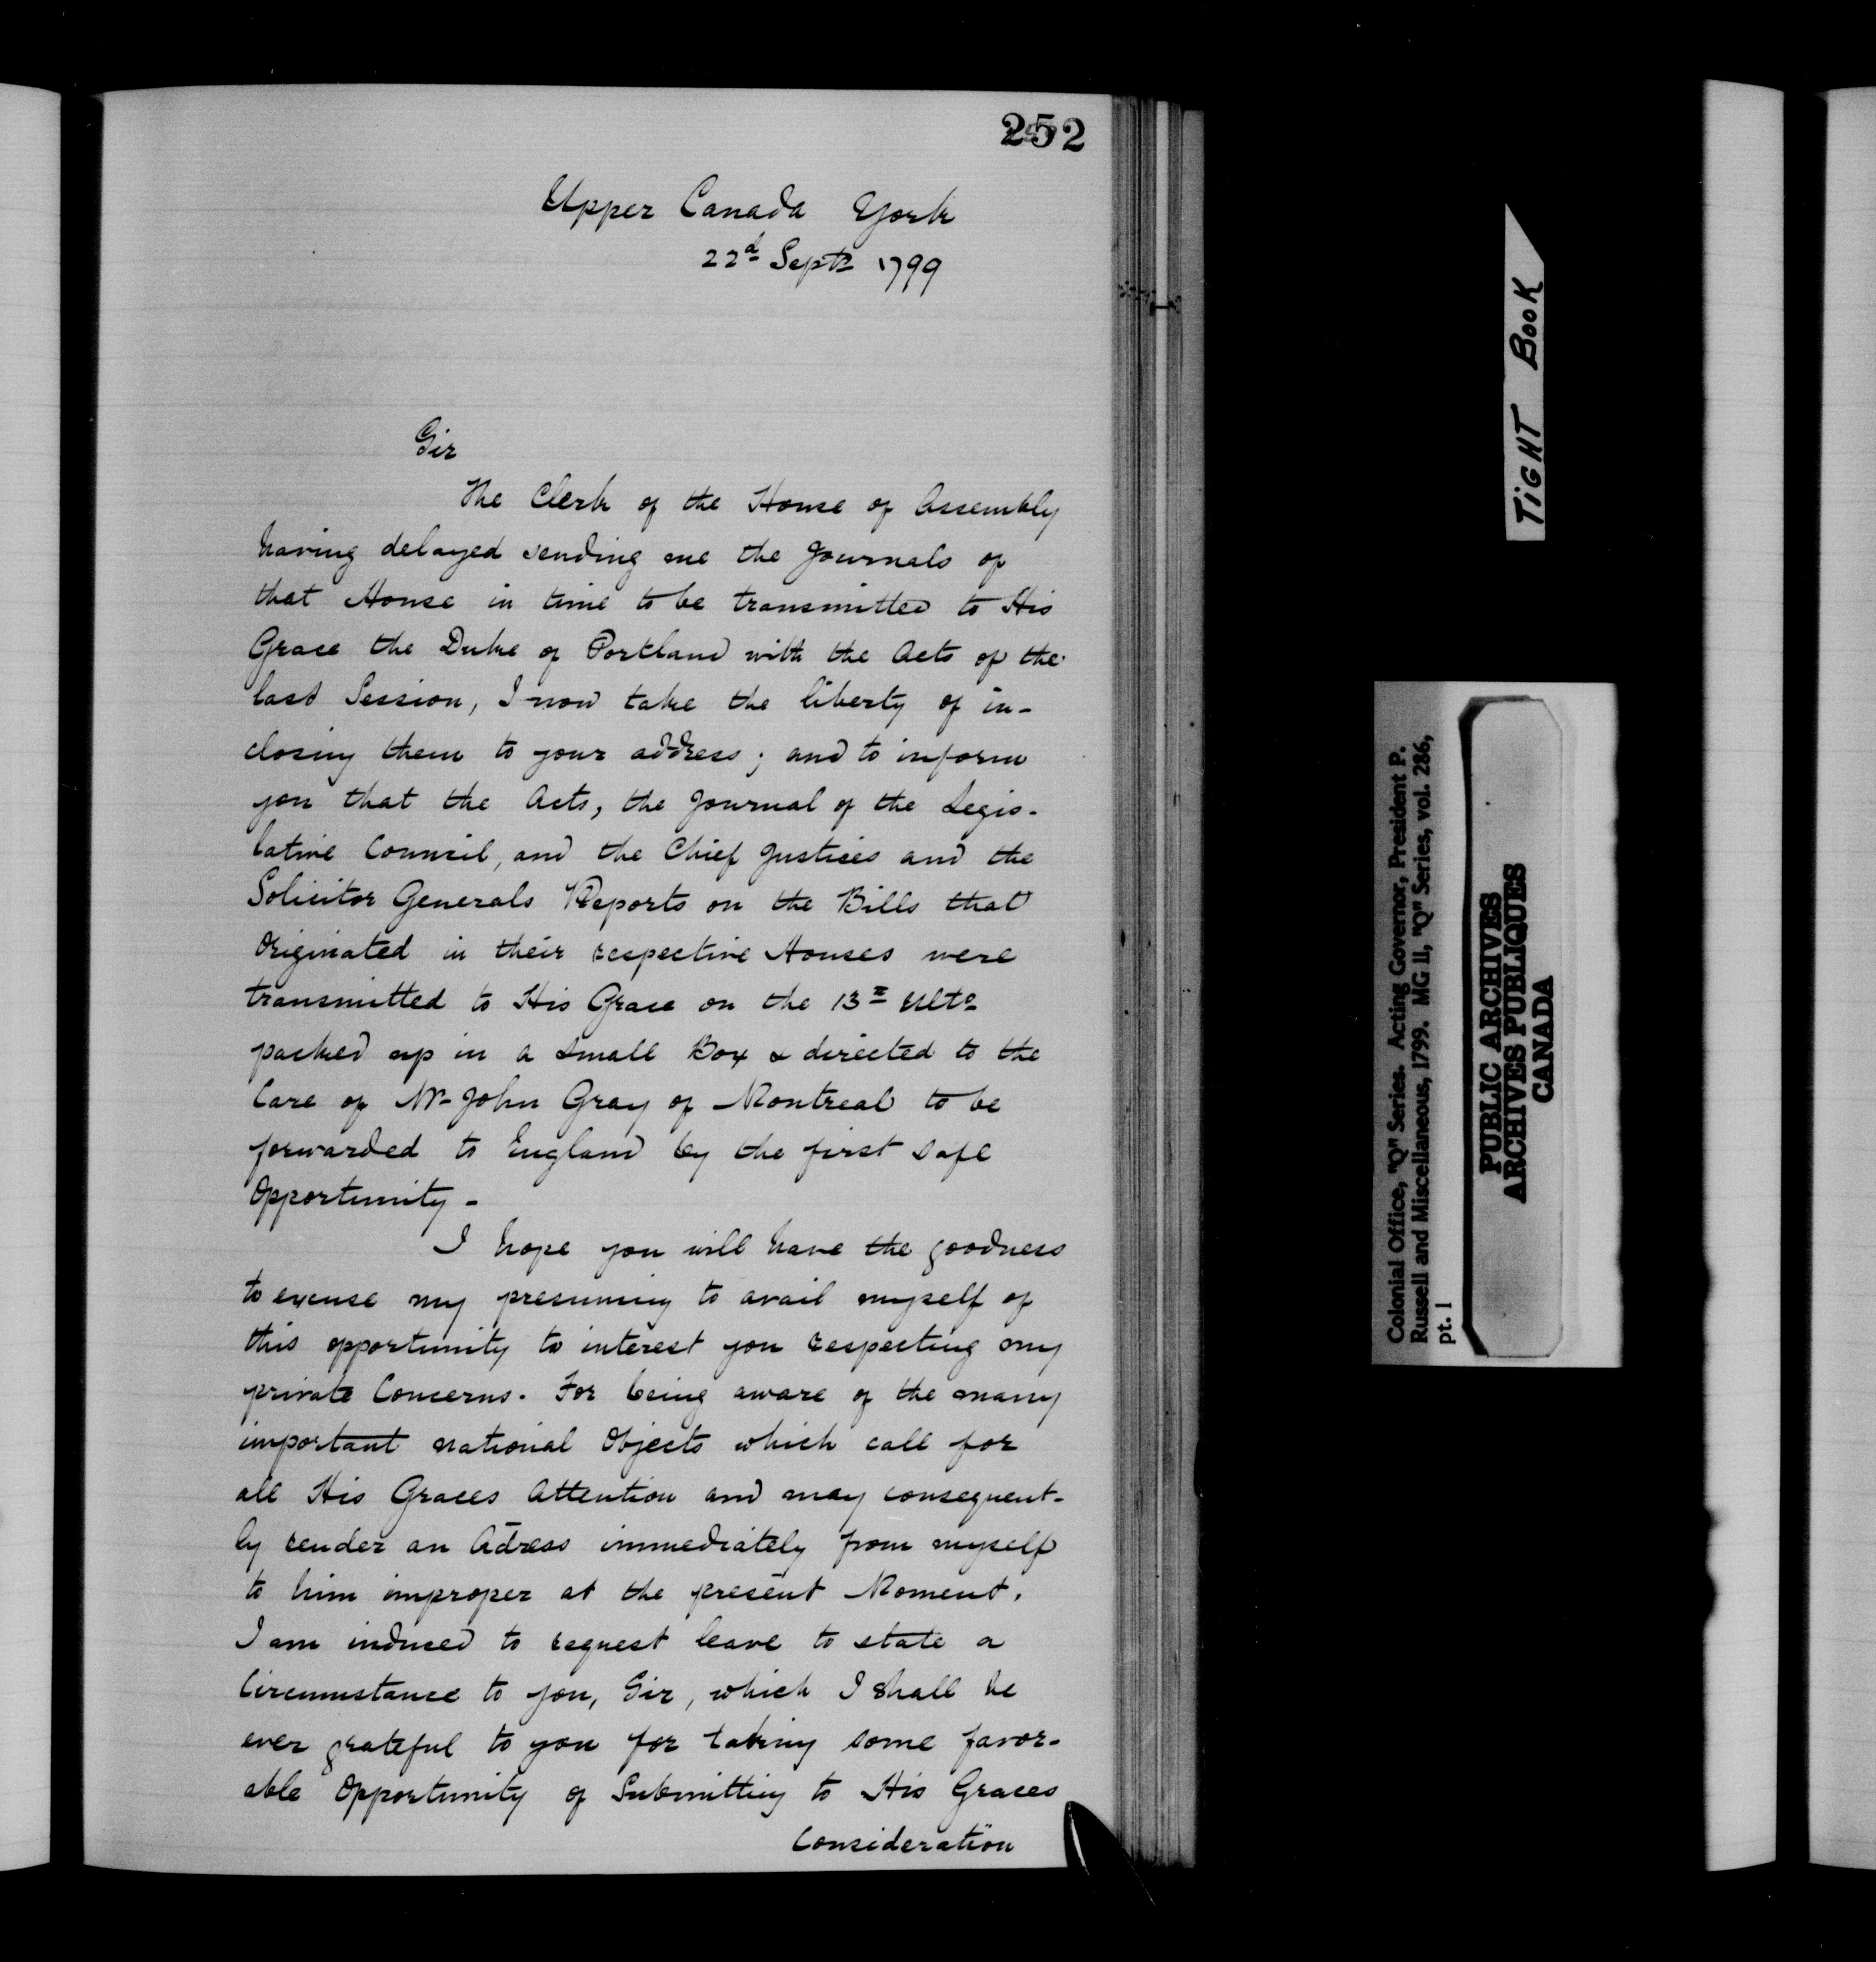 252
Upper Canada York
22d Septr 1799
Sir
The Clerk of the House of Assembly
having delayed sending me the Journals of
that House in time to be transmitted to His
Grace the Duke of Portland with the Acts of the
last Session, I now take the liberty of in-
closing them to your address; and to inform
you that the Acts, the Journal of the Legis-
lative Council, and the Chief Justices and the
Solicitor Generals Reports on the Bills that
Originated in their respective Houses were
transmitted to His Grace on the 13th Ulto
packed up in a small Box & directed to the
Care of Mr John Gray of Montreal to be
forwarded to England by the first safe
Opportunity -
I hope you will have the goodness
to excuse my presuming to avail myself of
this opportunity to interest you respecting my
private Concerns. For being aware of the many
important national Objects which call for
all His Graces Attention and may consequent-
ly render an Adress immediately from myself
to him improper at the present Moment.
I am induced to request leave to state a
Circumstance to you, Sir, which I shall be
ever grateful to you for taking some favor-
able Opportunity of Submitting to His Graces
Consideration
TiGHT BooK
Colonial Office, "Q" Series. Acting Governor, President P.
Russell and Miscellaneous, 1799. MG 11, "Q" Series, vol. 286,
pt. 1
PUBLIC ARCHIVES
ARCHIVES PUBLIQUES
CANADA